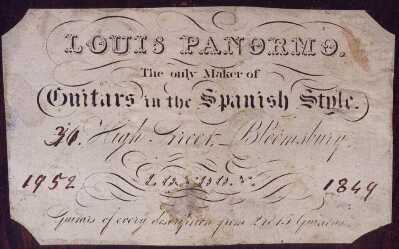 LOUIS PANORMO.
The only Maker of
Guitars in the Spanish Style.
High Street Bloomsbury.
1952
1849
Guitars of every description from 2 to 15 Guineas